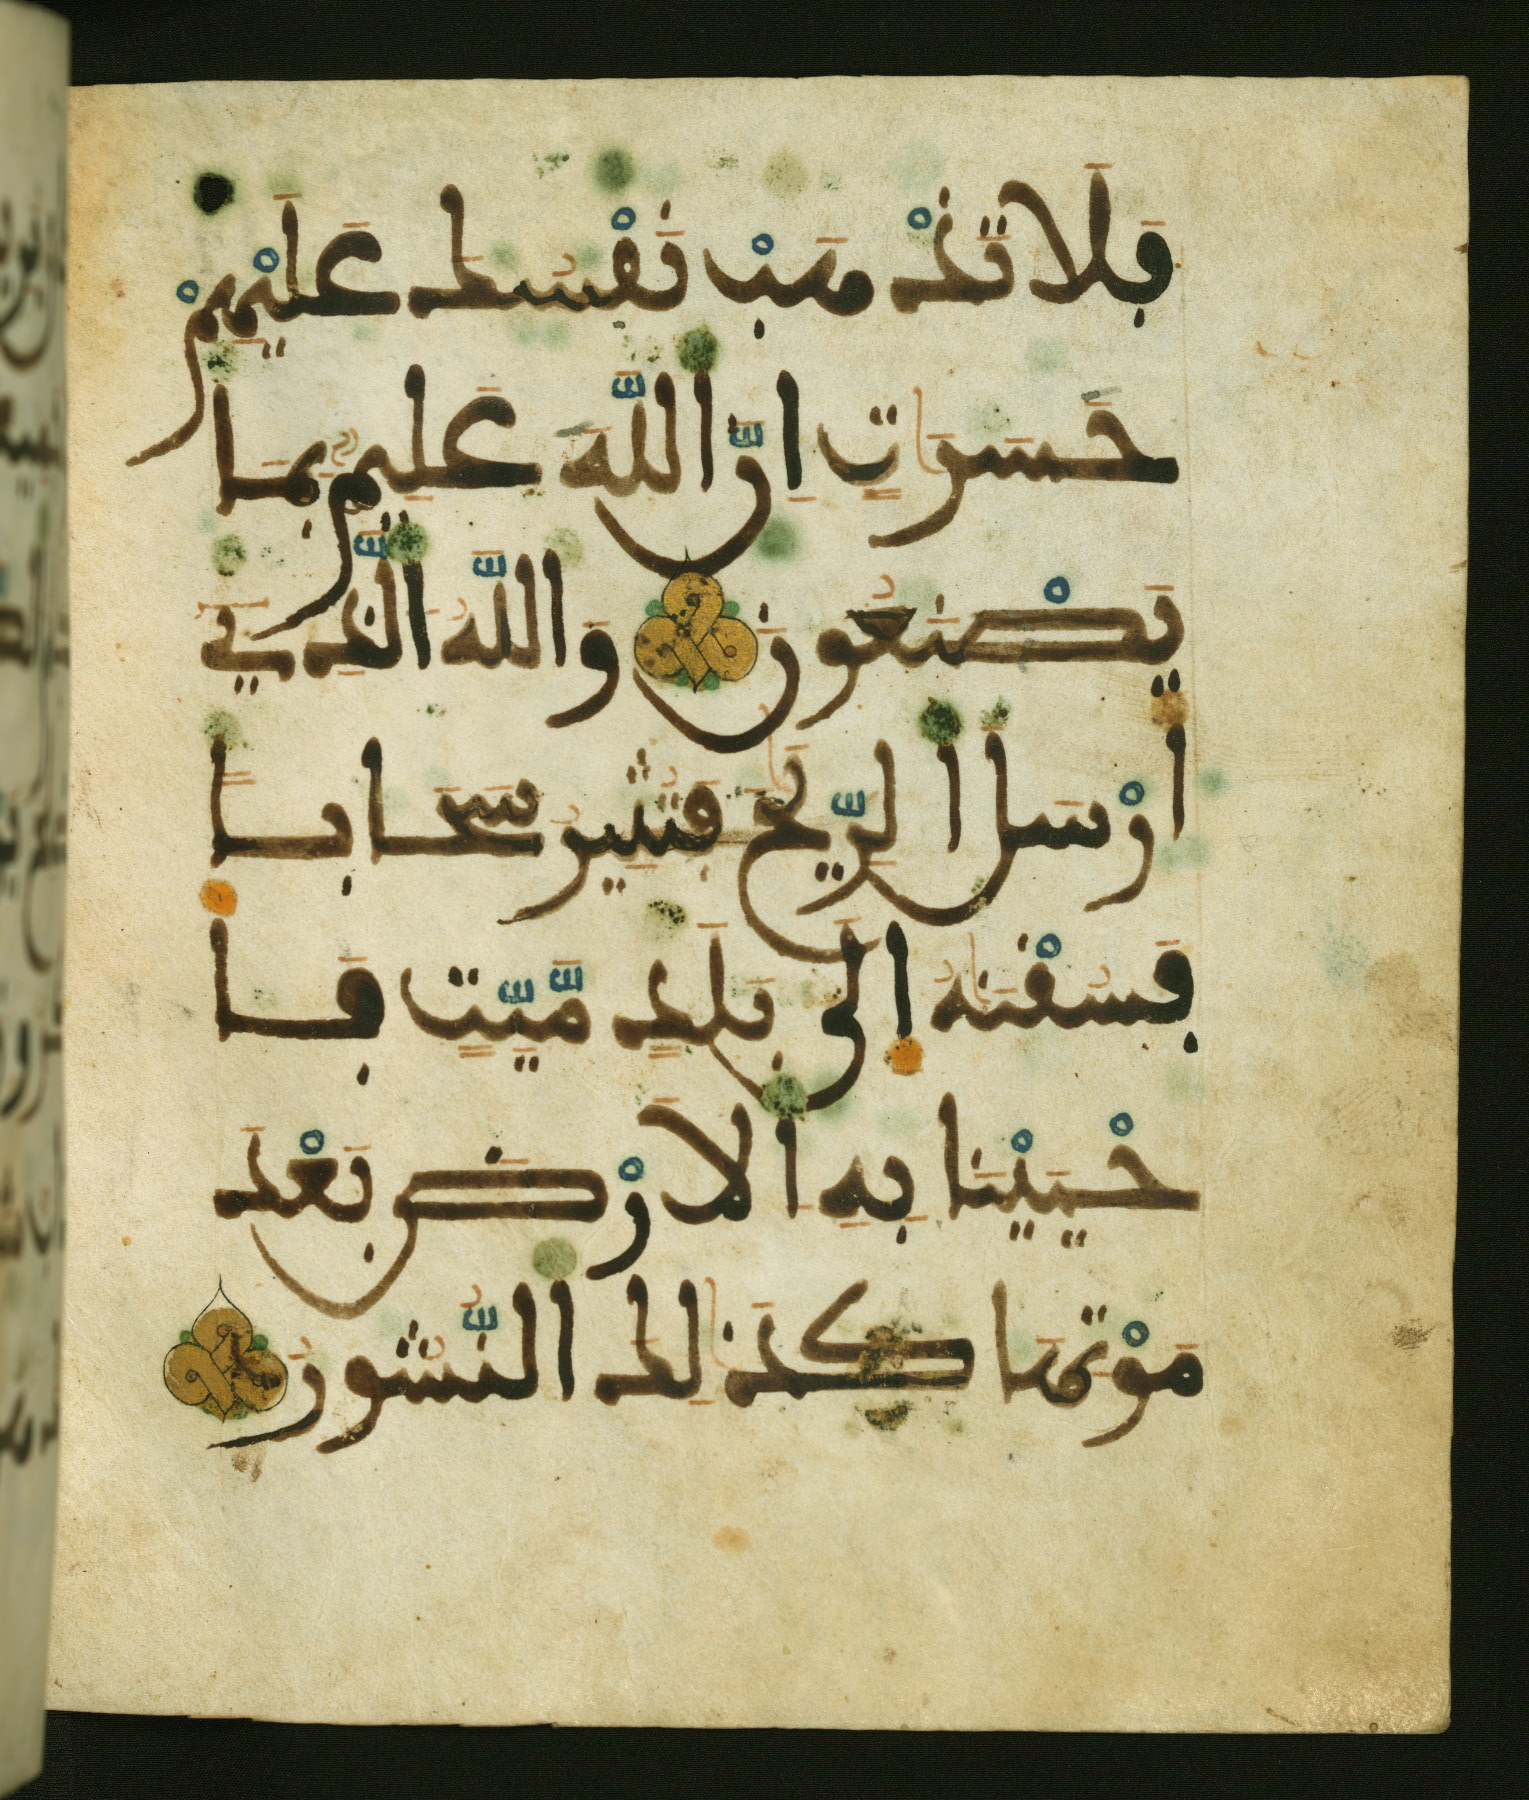 فَلَا تَذْهَبْ نَفْسُكَ عَلَيْهِمْ
حَسَرَٰتٍ اِنَّ اَللَّهَ عَلِيمٌ بِمَا
يَصْنَعُونَ وَاللَّهُ اَلَّذِي
أَرْسَلَ اَلرِّيَٰحَ فَتُثِيرُ سَحَابًا
فَسُقْنَٰهُ إِلَىٰ بَلَدٍ مَّيِّتٍ فَأَ
حْيَيْنَا بِهِ اِلَارْضَ بَعْدَ
مَوْتِهَا كَذَٰلِكَ اَلنُّشُورُ